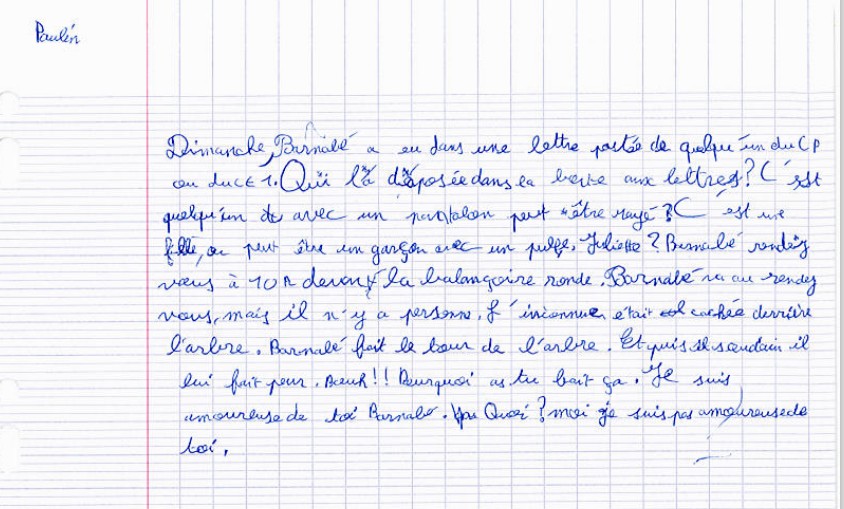 Paulin
Dimanche, Barnabé a eu dans une lettre postée de quelqu'un du CP
ou du CE1. Qui l'a déposée dans sa boite aux lettres? C'est
quelqu'un de avec un pantalon peut être rayé? C'est une
fille, ou peut être un garçon avec un pulge, Juliette? Barnabé rendez
vous à 10h devant la balançoire ronde. Barnabé va au rendez
vous, mais il n'y a personne. L'inconnue était cachée derrière
l'arbre. Barnabé fait le tour de l'arbre. Et puis soudain il
lui fait peur. Bœuh!! Pourquoi as tu bait ça. Je suis
amoureuse de toi Barnabé. Quoi? moi je suis pas amoureuse de
toi.